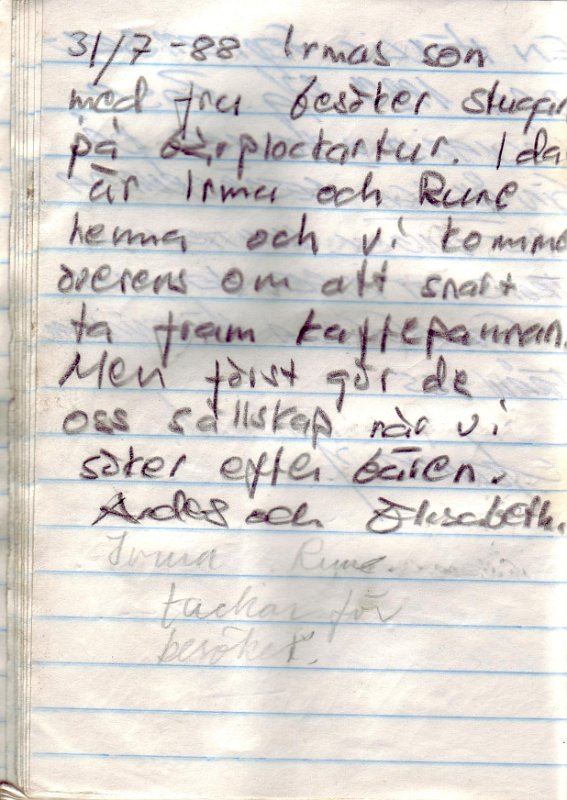 31/7-88 Irmas son
med fru besöker stugan
på bärplockartur. Ida
är Irma och Rune
hemma och vi komme
överens om att snart
ta fram kaffepannan.
Men först gör de
oss sällskap när vi
söker efter bären.
och Elisabeth.
Irma Rune
tackar för
besöket.